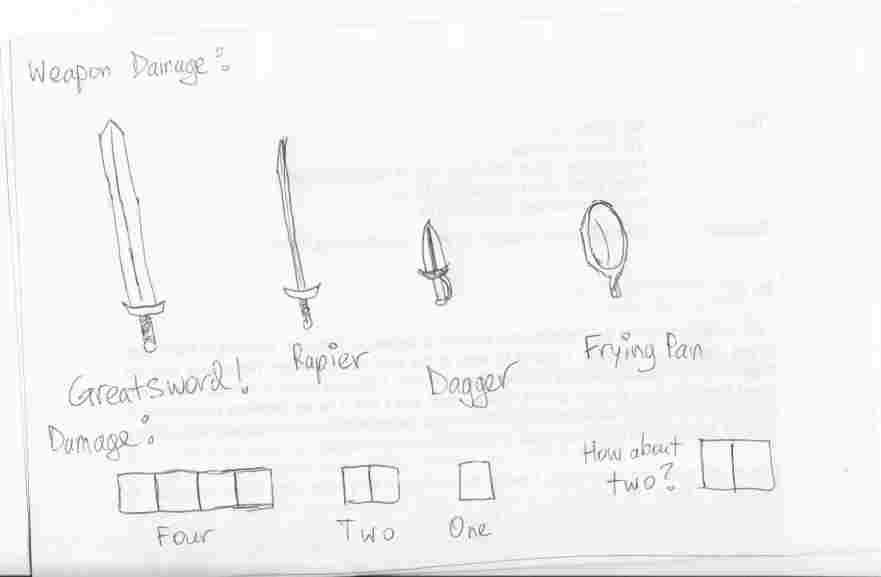 Weapon Damage:
Greatsword!
Rapier
Dagger
Frying Pan
Damage:
Four
Two
One
How about
two?